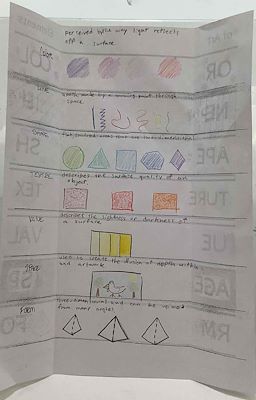 perceived by the way light reflects
off a surface.
Color
Line
made by a moving point through
space.
Shape
flat enclosed areas that are two-dimensional
Texture
describes the surface quality of an
object.
Value
describes the lightness or darkness of
a surface.
Space
used to create the illusion of depth within
and artwork
Form
three-dimensional and can be viewed
from many angles